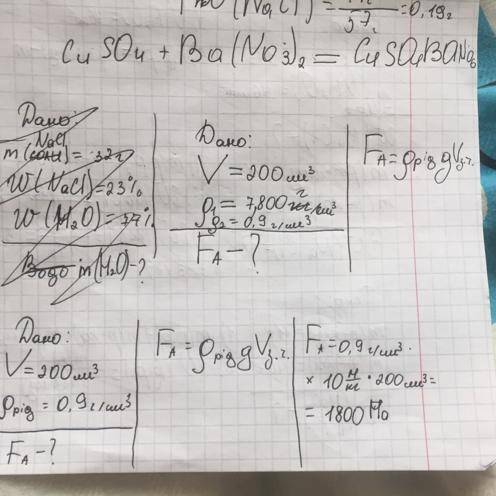 (NaCl) = = 0,19г
57
CuSO4 + Ba(NO3)2 = CuSO4BaNO6
Дано:
NaCl
m(соли) = 32г
W(NaCl)=23%
W(H2O) = 77%
m(H2O)-?
Дано:
V=200см³
ρ1=7,800 г/см³
ρ2=0,9г/см³
FA-?
FA=ρрід gVз.ч.
Дано:
V=200см³
ρрід=0,9г/см³
FA-?
FA=ρрід gVз.ч.
FA=0,9г/см³·
× 10 Н/кг · 200см³=
= 1800